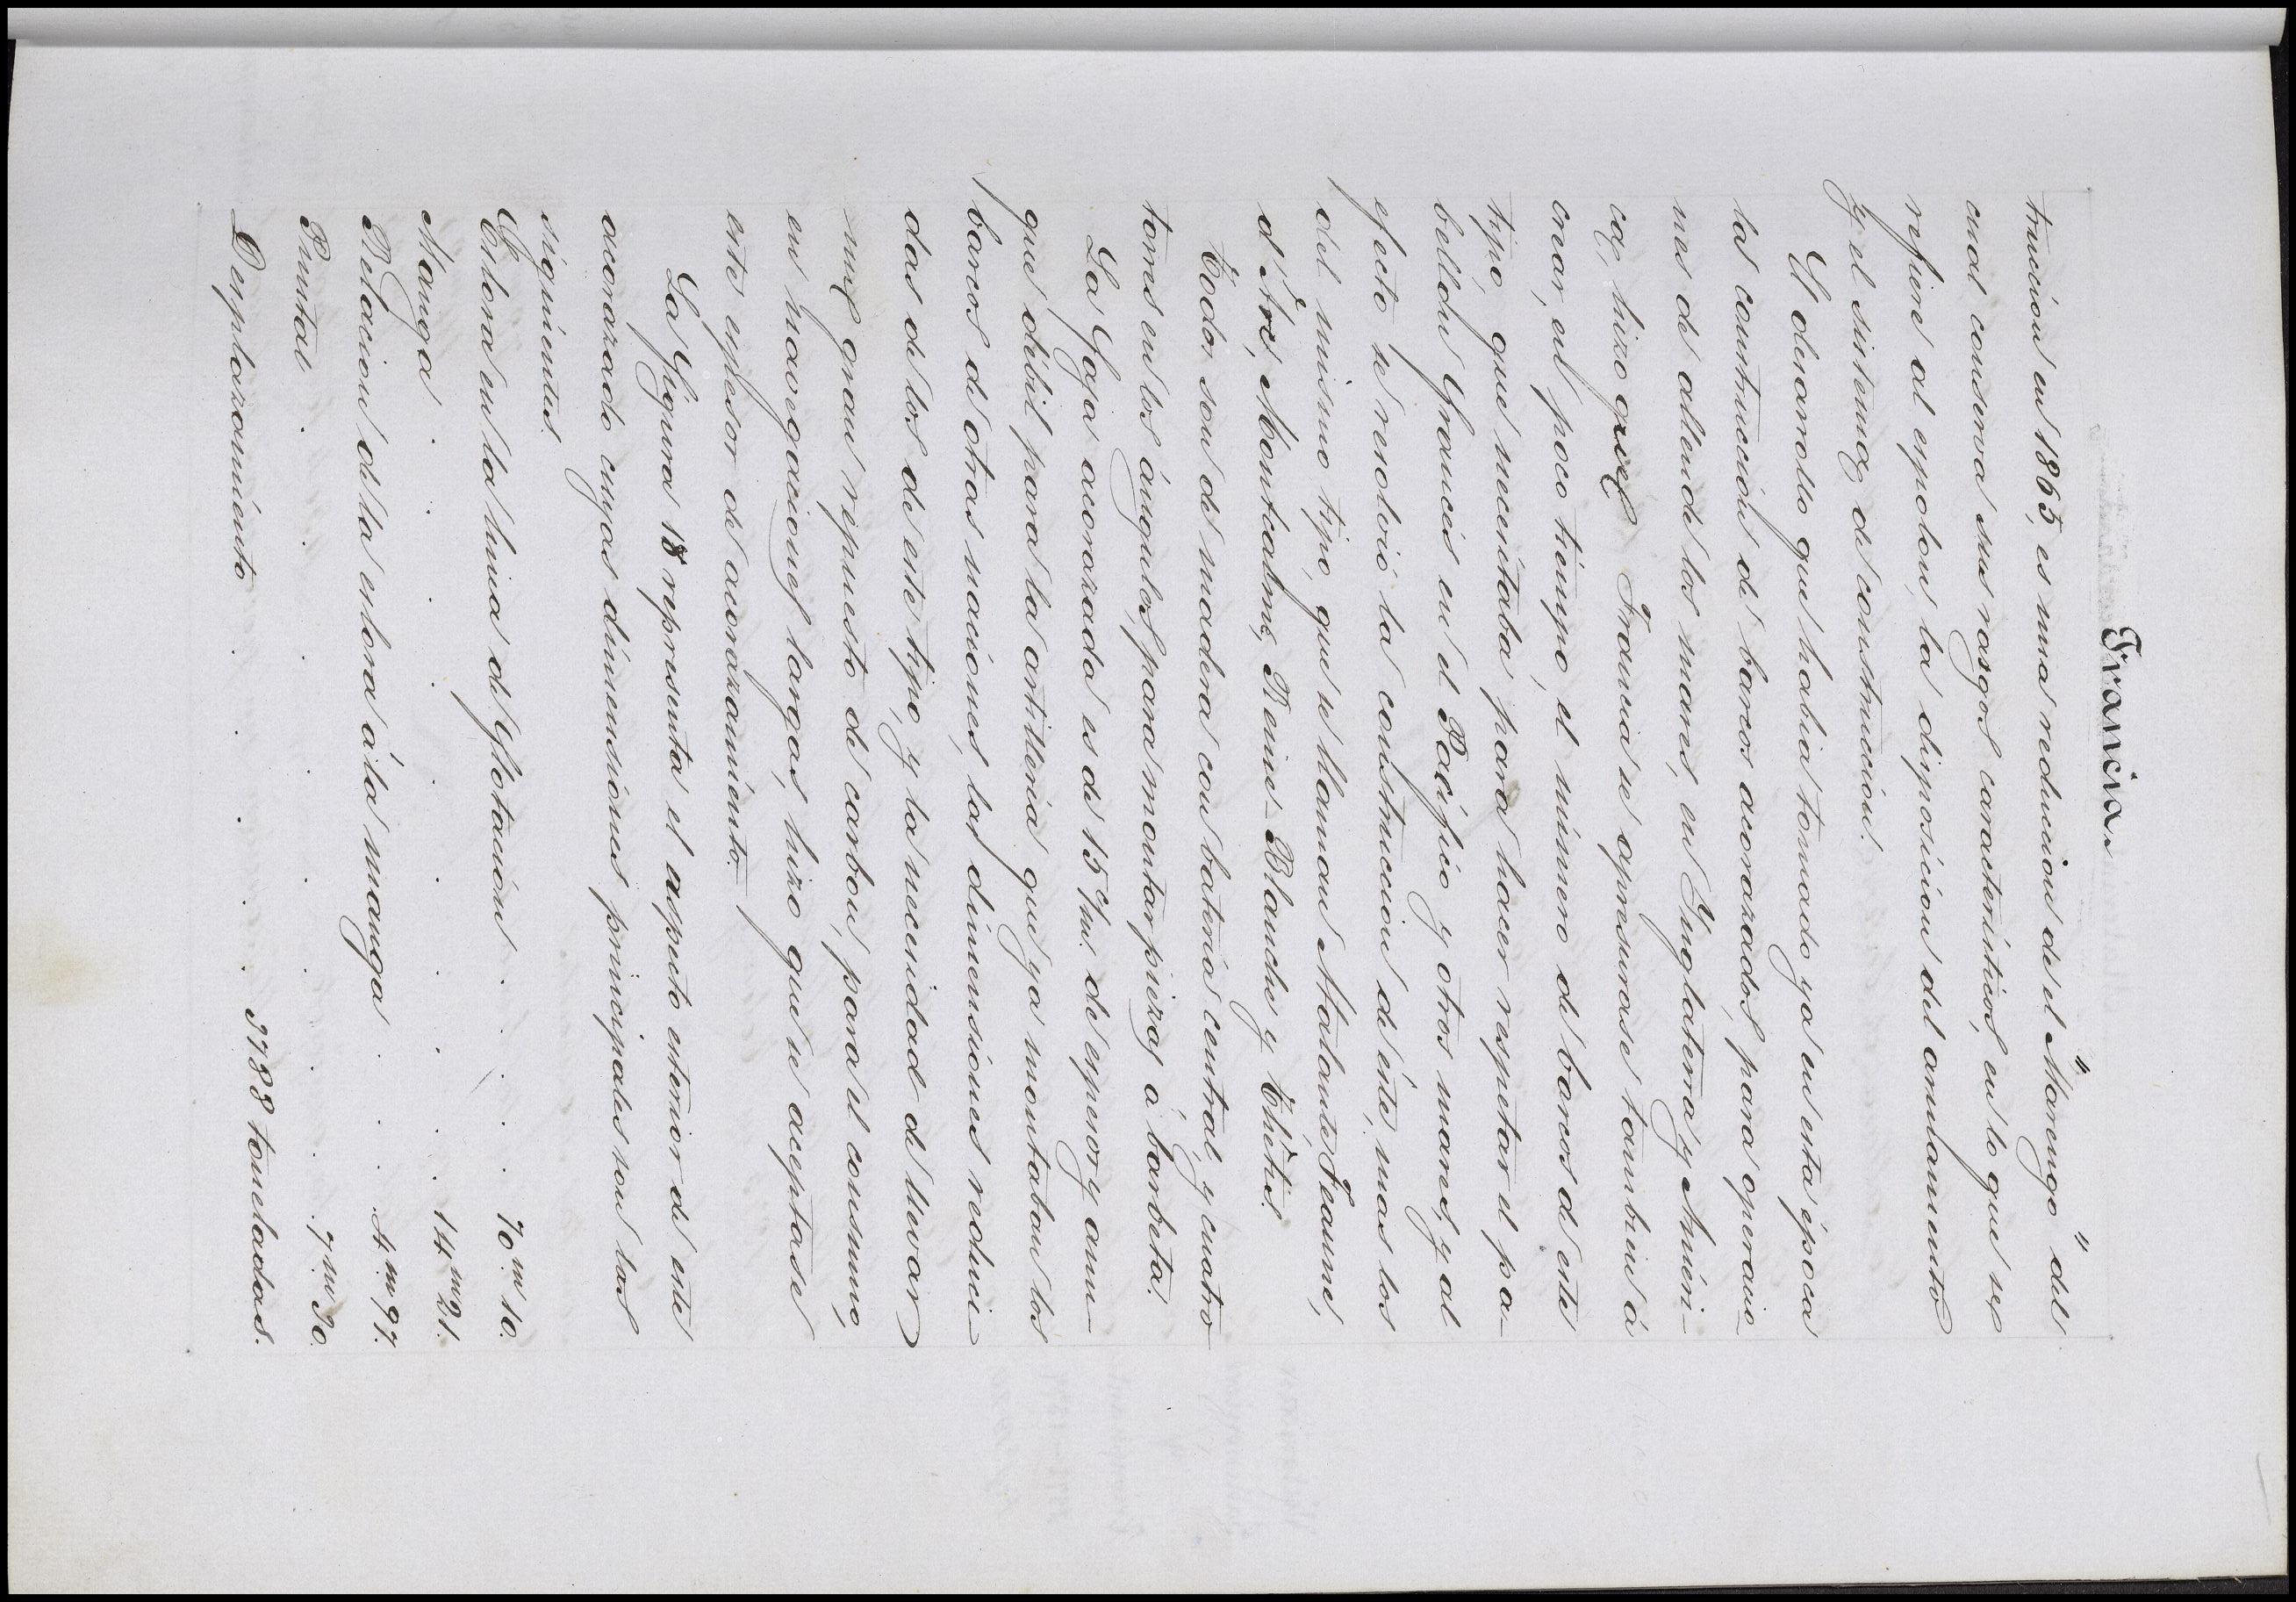 Francia
trucción en 1865, es una reduccion de el "Marengo" del
cual conserva sus rasgos característicos, en lo que se
refiere al espolon, la disposicion del armamento
y el sistema de construccion.
El desarrollo que habia tomado ya en esta época
la construcción de barcos acorazados, para operacio-
nes de allende los mares, en Inglaterra y Améri-
ca, hizo que Francia se apresurase tambien á
crear, en poco tiempo, el número de barcos de este
tipo, que necesitaba para hacer respetar el pa-
bellon francés en el Pacífico y otros mares, y al
efecto se resolvió la construccion de éste, mas los
del mismo tipo, que se llaman Atalante, Jeanne,
d'Arc, Montcalm, Reine-Blanche y Thétis.
Todos son de madera con bateria central, y cuatro
torres en los ángulos, para montar piezas á barbeta.
La faja acorazada es de 15 c/m. de espesor y aun-
que débil para la artilleria que ya montaban los
barcos de otras naciones, las dimensiones reduci-
das de los de este tipo, y la necesidad de llevar
un gran repuesto de carbon, para el consumo,
en navegaciones largas, hizo que se aceptase
este espesor de acorazamiento.
La figura 18 representa el aspecto esterior de este
acorazado cuyas dimensiones principales son las
siguientes.
Eslora en la linea de flotación . . . . 70.m 10.
Manga . . . . . . . . . 14.m 21.
Relacion de la eslora á la manga . . . . 4.m 97.
Puntal . . . . . . . . 7.m 30.
Desplazamiento . . . . . 3788 toneladas.